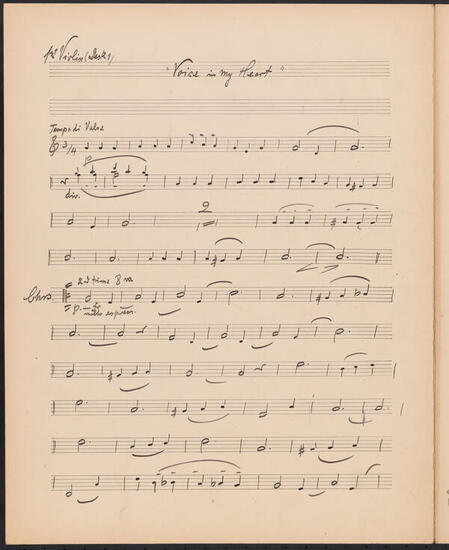 1st Violin (Desk 1)
"Voice in my Heart"
Tempo di Valse
3/4
div.
2
2nd time 8va
Chrs.
p. – f.
molto espress.